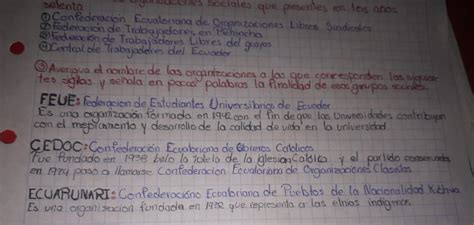 Organizaciones Sociales que presentes en los años
sesenta
① Confederación Ecuatoriana de Organizaciones Libres Sindicales
② Federación de Trabajadores en Pichincha
③ Federación de Trabajadores Libres del guayas
④ Central de Trabajadores del Ecuador
③ Averigua el nombre de las organizaciones a las que corresponden las siguien
tes siglas y señala en pocas palabras la finalidad de esos grupos sociales.
FEUE: Federación de Estudiantes Universitarios de Ecuador
Es una organización formada en 1942 con el fin de que las Universidades contribuyen
con el mejoramiento y desarrollo de la calidad de vida en la universidad
CEDOC: Confederación Ecuatoriana de Obreros Católicos
Fue fundado en 1938 bajo la tutela de la iglesia Católica y el partido conservador,
en 1974 paso a llamarse Confederacion Ecuatoriana de Organizaciones Clasistas
ECUARUNARI: Confederación Ecuatoriana de Pueblos de la Nacionalidad Kichwa
Es una organizacion fundada en 1972 que representa a las etnias indígenas.